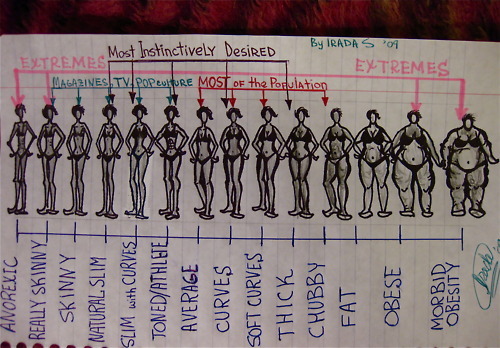 By IRADA S '09
MOST INSTINCTIVELY DESIRED
EXTREMES
EXTREMES
MAGAZINES, TV, POP CULTURE
MOST of the Population
ANOREXIC
REALLY SKINNY
SKINNY
NATURAL SLIM
SLIM with CURVES
TONED/ATHLETE
AVERAGE
CURVES
SOFT CURVES
THICK
CHUBBY
FAT
OBESE
MORBID
OBESITY
Irada